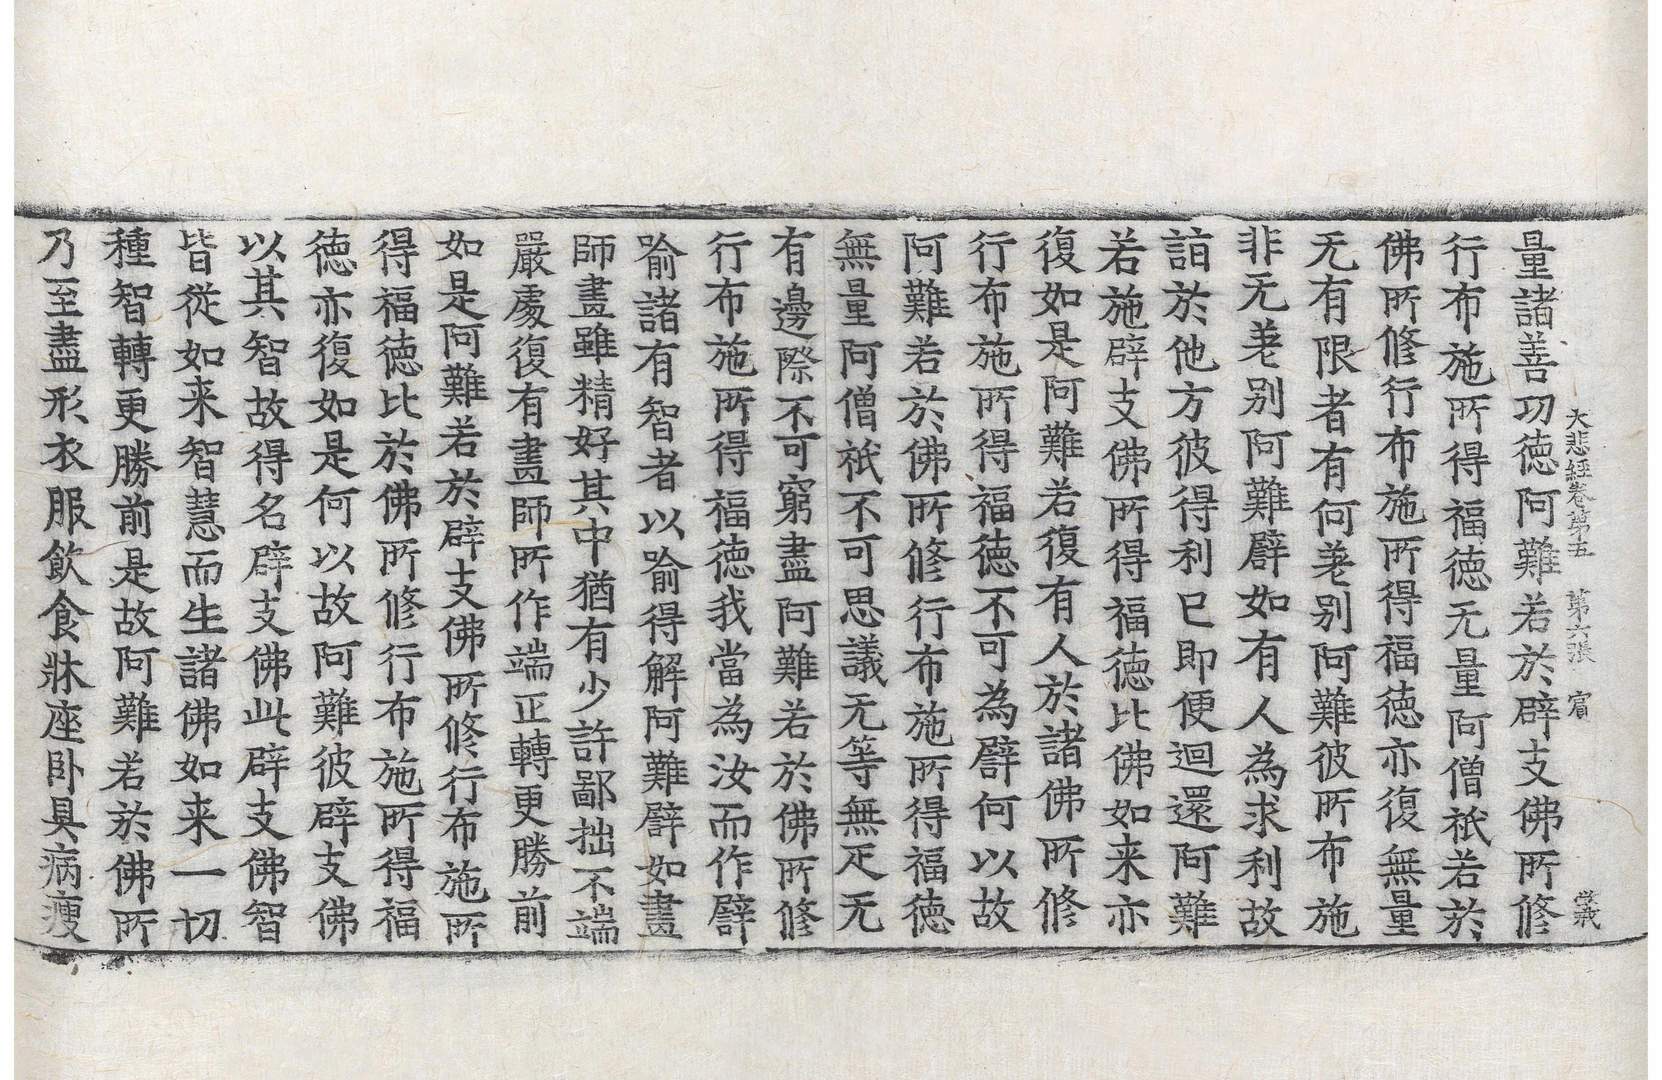 大悲經卷第五　第六張　賓
量諸善功徳阿難若於辟支佛所修
行布施所得福徳无量阿僧祇若於
佛所修行布施所得福徳亦復無量
无有限者有何差别阿難彼所布施
非无差别阿難譬如有人為求利故
詣於他方彼得利已即便迴還阿難
若施辟支佛所得福徳比佛如来亦
復如是阿難若復有人於諸佛所修
行布施所得福徳不可為譬何以故
阿難若於佛所修行布施所得福徳
無量阿僧祇不可思議无等無疋无
有邊際不可窮盡阿難若於佛所修
行布施所得福徳我當為汝而作譬
喻諸有智者以喻得解阿難譬如畫
師畫雖精好其中猶有少許鄙拙不端
嚴處復有畫師所作端正轉更勝前
如是阿難若於辟支佛所修行布施所
得福徳比於佛所修行布施所得福
徳亦復如是何以故阿難彼辟支佛
以其智故得名辟支佛此辟支佛智
皆從如来智慧而生諸佛如来一切
種智轉更勝前是故阿難若於佛所
乃至盡形衣服飲食牀座卧具病瘦